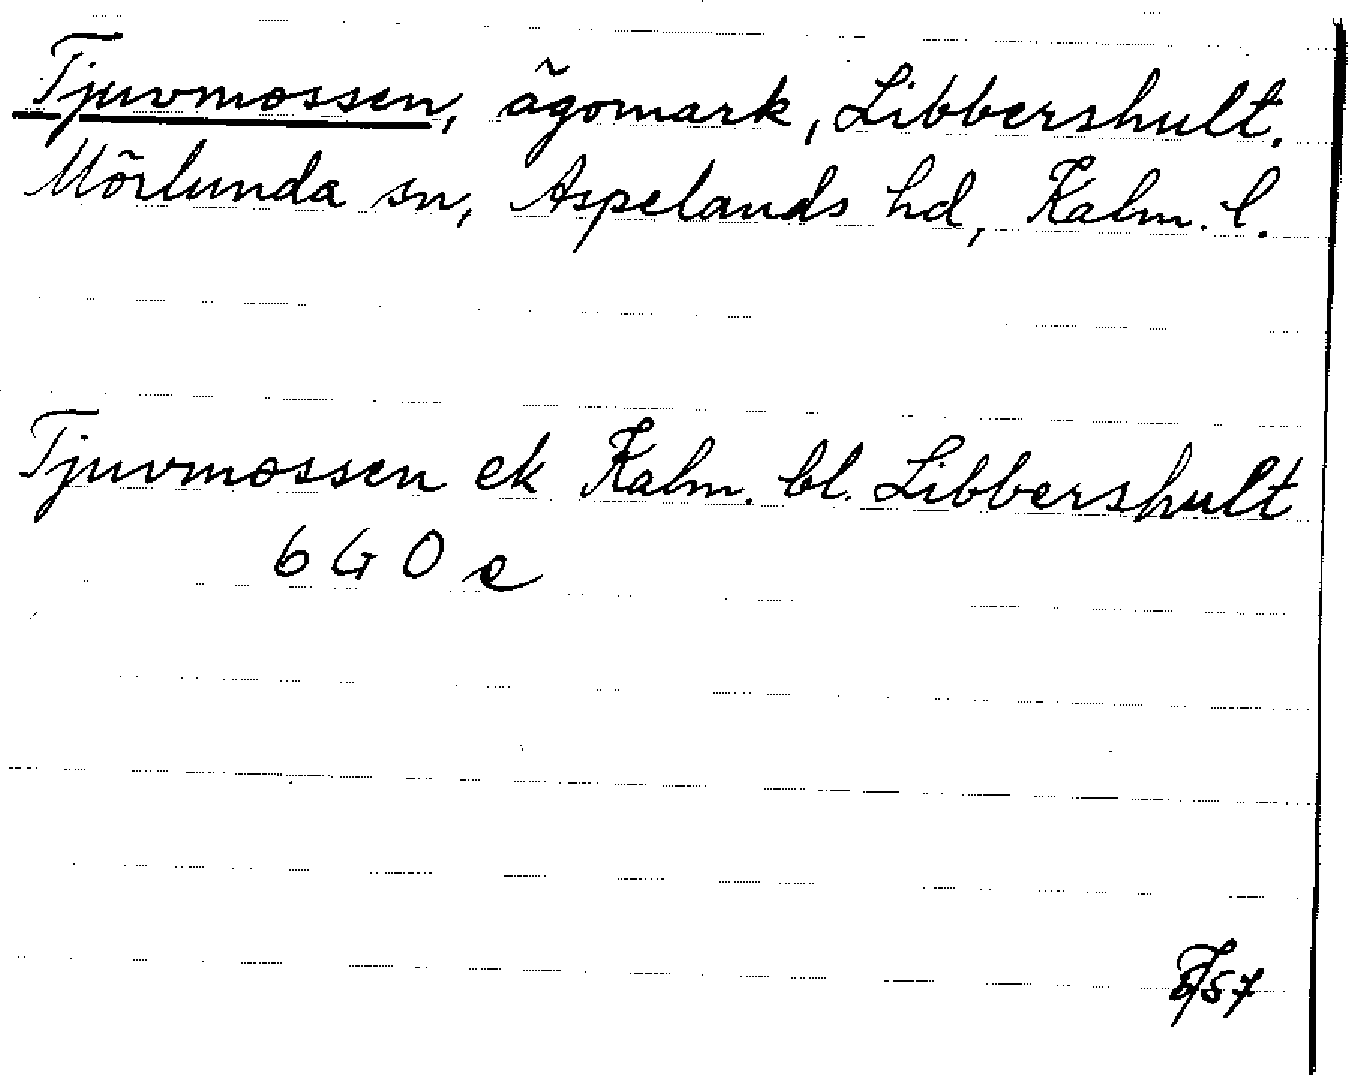 Tjuvmossen, ägomark, Libbershult.
Mörlunda sn, Aspelands hd, Kalm. l.
Tjuvmossen ek Kalm. bl. Libbershult
6 G O e